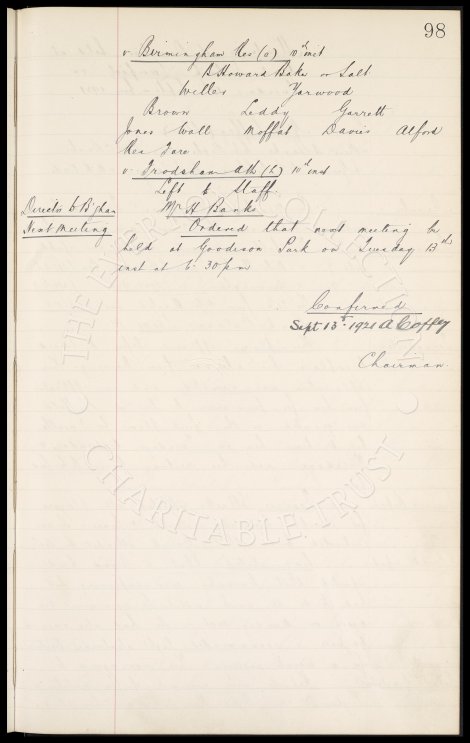 98
v Birmingham Res (a) 10th inst
B Howard Baker or Salt
Weller Yarwood
Brown Leddy Garrett
Jones Wall Moffat Davies Alford
Res Fare
v Frodsham Ath (L) 10th inst
Left to Staff.
Director to B'ham Mr H Banks
Next Meeting Ordered that next meeting be
held at Goodison Park on Tuesday 13th
inst at 6.30pm
Confirmed
Sept 13th 1921 A Coffey
Chairman.
THE EVERTON COLLECTION
CHARITABLE TRUST